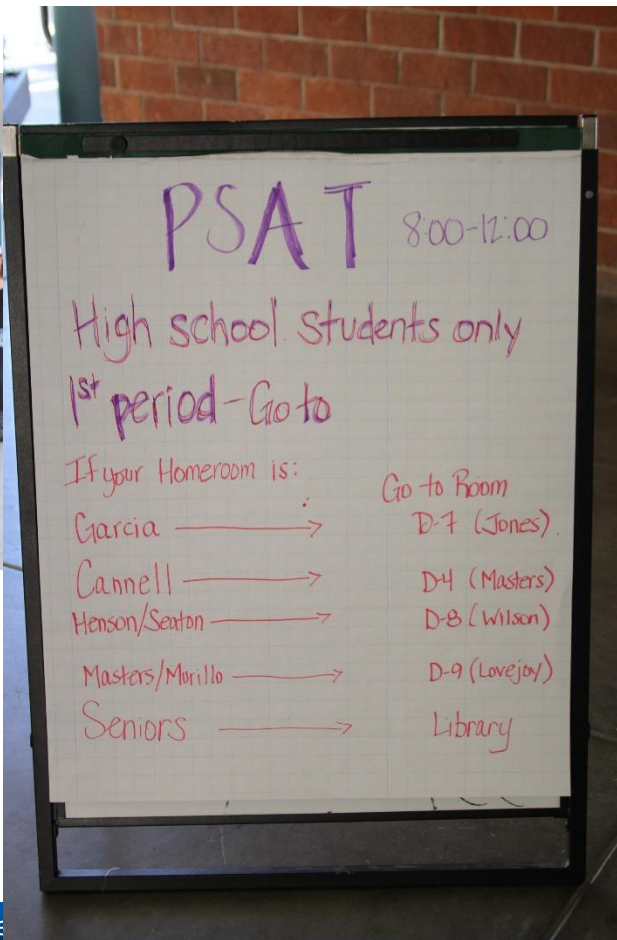 PSAT 8:00-12:00
High school students only
1st period - Go to
If your Homeroom is: Go to Room
Garcia → D-7 (Jones)
Cannell → D-4 (Masters)
Henson/Seaton → D-8 (Wilson)
Masters/Murillo → D-9 (Lovejoy)
Seniors → Library